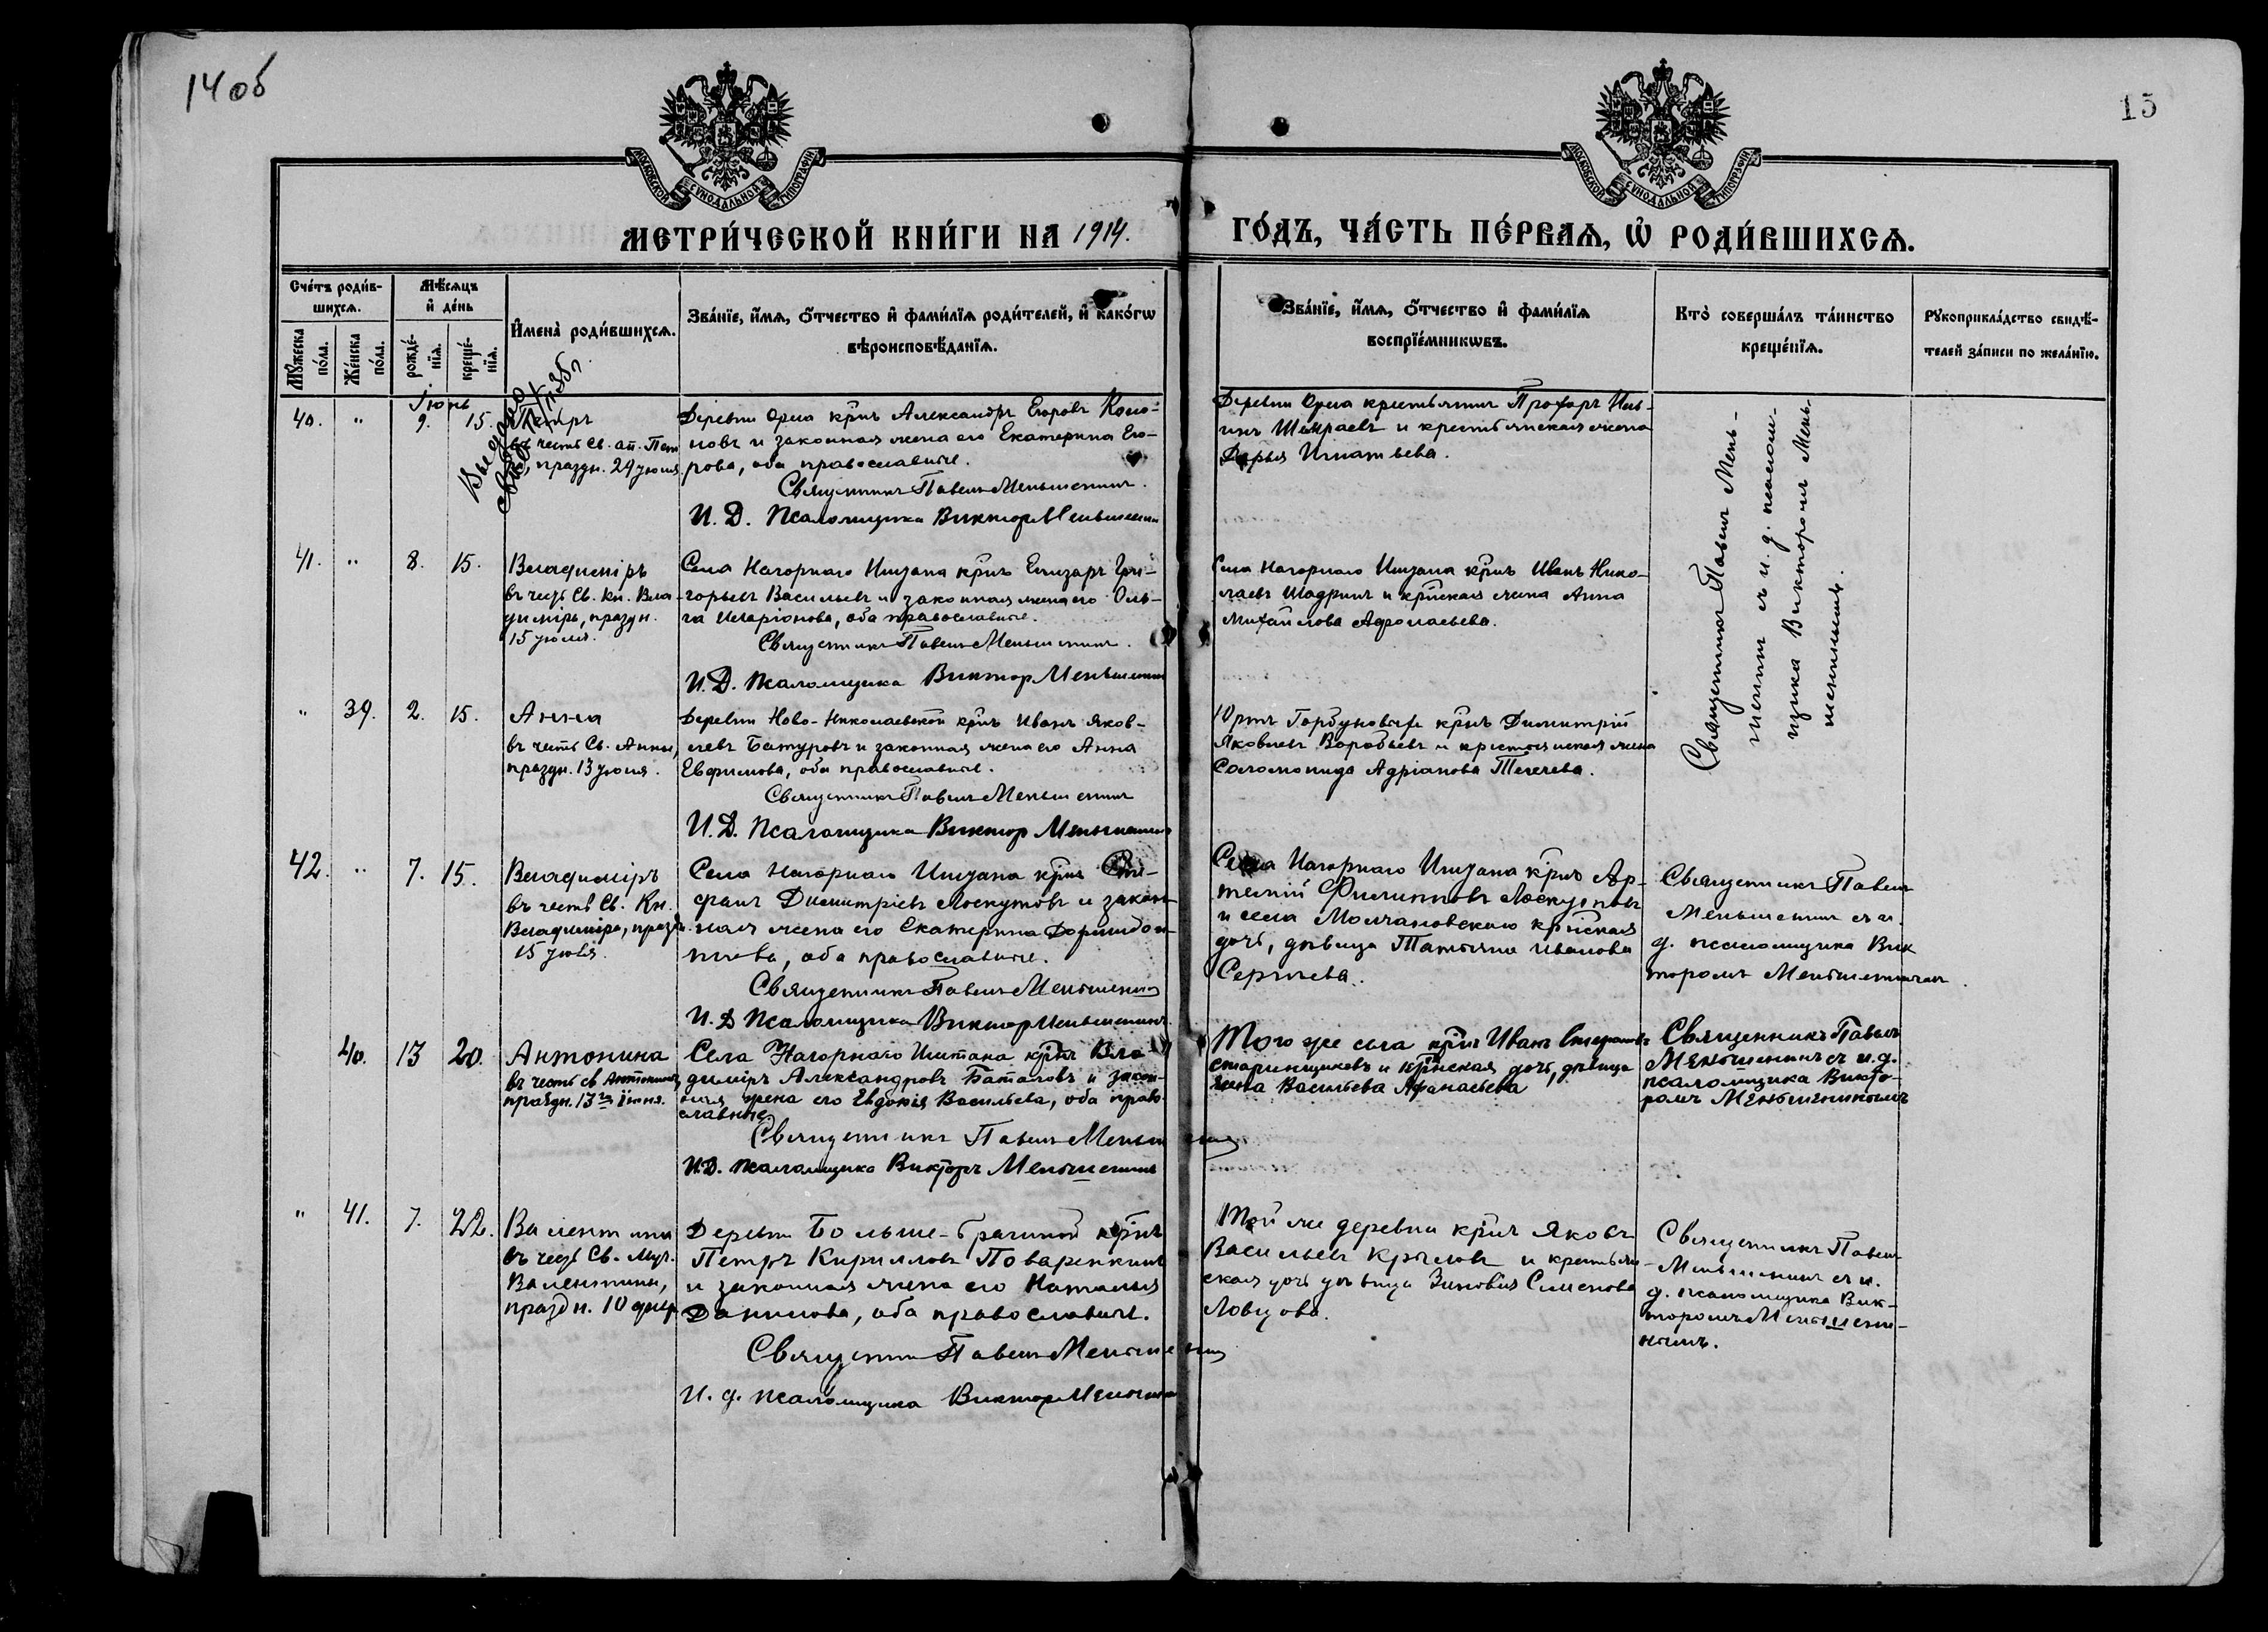 14 об
15
МОСКОВСКОЙ СѴНОДАЛЬНОЙ ТИПОГРАФІИ.
МОСКОВСКОЙ СѴНОДАЛЬНОЙ ТИПОГРАФІИ.
МЕТРИ́ЧЕСКОЙ КНИ́ГИ НА 1914.
ГО́ДЪ, ЧА́СТЬ ПЕ́РВАѦ, Ѡ҆ РОДИ́ВШИХСѦ.
Сче́тъ роди́в-
шихсѧ.
Мѣ́сѧцъ
и҆ де́нь
Мꙋ́жеска
по́ла.
Же́нска
по́ла.
рожде́-
нїѧ.
креще́-
нїѧ.
И҆мена̀ роди́вшихсѧ.
Зва́нїе, и҆́мѧ, ѻ҆́тчество и҆ фами́лїѧ роди́телей, и҆ како́гѡ
вѣроисповѣ́данїѧ.
Зва́нїе, и҆́мѧ, ѻ҆́тчество и҆ фами́лїѧ
воспрїе́мникѡвъ.
Кто̀ соверша́лъ та́инство
креще́нїѧ.
Рꙋкоприкла́дство свидѣ́-
телей за́писи по жела́нїю.
Іюнь
40. " 9. 15. Петръ
въ честь Св. ап. Пет
праздн. 29 іюня
Деревни Орла кр-нъ Александръ Егоровъ Коно-
новъ и законная жена его Екатерина Его-
рова, оба православные.
Священникъ Павелъ Меньшенинъ.
И. Д. Псаломщика Викторъ Меньшенин
Деревни Орла крестьянинъ Прохоръ
и крестьянская жена
Дарья Игнатьева.
Священникъ Павелъ Мень-
шенинъ съ и. д. псалом-
щика Викторомъ Мень-
шенинымъ.
41. " 8. 15. Владиміръ
въ честь Св. Кн. Вла-
диміра, праздн.
15 іюля.
Села Нагорнаго Иштана кр-нъ Елизаръ Гри-
горьевъ Васильевъ и законная жена его Оль-
га Иларіонова, оба православные.
Священникъ Павелъ Меньшенинъ.
И. Д. Псаломщика Виктор Меньшенин
Села Нагорнаго Иштана кр-нъ Иванъ Нико-
лаевъ Шадринъ и кр-нская жена Анна
Михайлова Афонасьева.
" 39. 2. 15. Анна
въ честь Св. Анны,
праздн. 13 іюня.
Деревни Ново-Николаевской кр-нъ Иванъ Яков-
левъ Батуровъ и законная жена его Анна
Евфимова, оба православные.
Священникъ Павелъ Меньшенинъ
И. Д. Псаломщика Виктор Меньшенинъ
Юртъ Горбуновыхъ кр-нъ Димитрій
Яковлевъ Воробьевъ и крестьянская жена
Соломонида Адріанова
42. " 7. 15. Владиміръ
въ честь Св. Кн.
Владиміра, праздн.
15 іюля.
Села Нагорнаго Иштана кр-нъ Сте-
фанъ Димитріевъ Лоскутовъ и закон-
ная жена его Екатерина Дормидон-
това, оба православные.
Священникъ Павелъ Меньшенинъ
И. Д Псаломщика Виктор Меньшенинъ.
Села Нагорнаго Иштана кр-нъ Ар-
темій Филипповъ Лоскутовъ
и села Молчановскаго кр-нская
дочь, дѣвица Татьяна Иванова
Сергѣева.
Священникъ Павелъ
Меньшенинъ съ и.
д. псаломщика Вик
торомъ Меньшенинымъ.
40. 13 20. Антонина
въ честь св. Антонины,
праздн. 13го іюня.
Села Нагорнаго Иштана кр-нъ Вла-
диміръ Александровъ Баталовъ и закон-
ная жена его Евдокія Васильева, оба право-
славные
Священникъ Павелъ Меньшенинъ
И.Д. Псаломщика Викторъ Меньшенинъ
Того же села кр-нъ Иванъ Стефановъ
Старинщиковъ и кр-нская дочь, дѣвица
Васильева Афанасьева
Священникъ Павелъ
Меньшенинъ съ и.д.
псаломщика Викто-
ромъ Меньшенинымъ
" 41. 7. 22. Валентина
въ честь Св. Муч.
Валентины,
праздн. 10 февр.
Деревни Больше-Брагиной кр-нъ
Петръ Кирилловъ Поваренкинъ
и законная жена его Наталья
Данилова, оба православные.
Священникъ Павелъ Меньшенинъ
И. д. псаломщика Виктор Меньшенин
Той же деревни кр-нъ Яковъ
Васильевъ Крыловъ и крестьян-
ская дочь дѣвица Зиновія Семенова
Ловцова.
Священникъ Павелъ
Меньшенинъ съ и.
д. псаломщика Вик-
торомъ Меньшени-
нымъ.